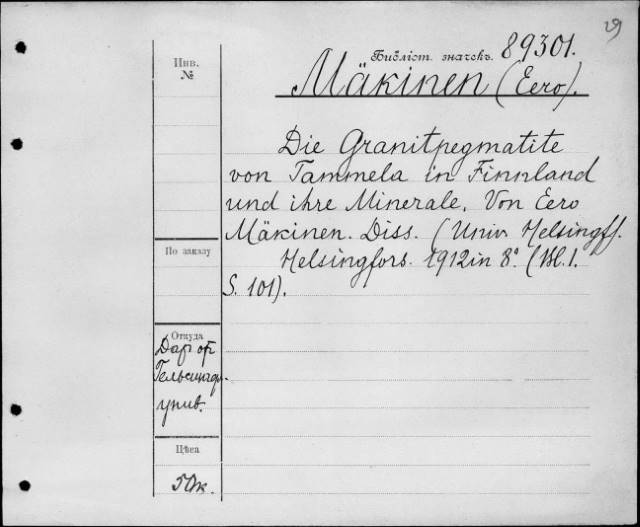 29
Библіот. значекъ. 89301.
Инв.
№
Mäkinen (Eero).
Die Granitpegmatite
von Tammela in Finnland
und ihre Minerale. Von Eero
Mäkinen. Diss. (Univ. Helsingf).
Helsingfors. 1912 in 8°. (Bl. 1.
S. 101).
По заказу
Откуда
Дар от
Гельсингф.
унив.
Цѣна